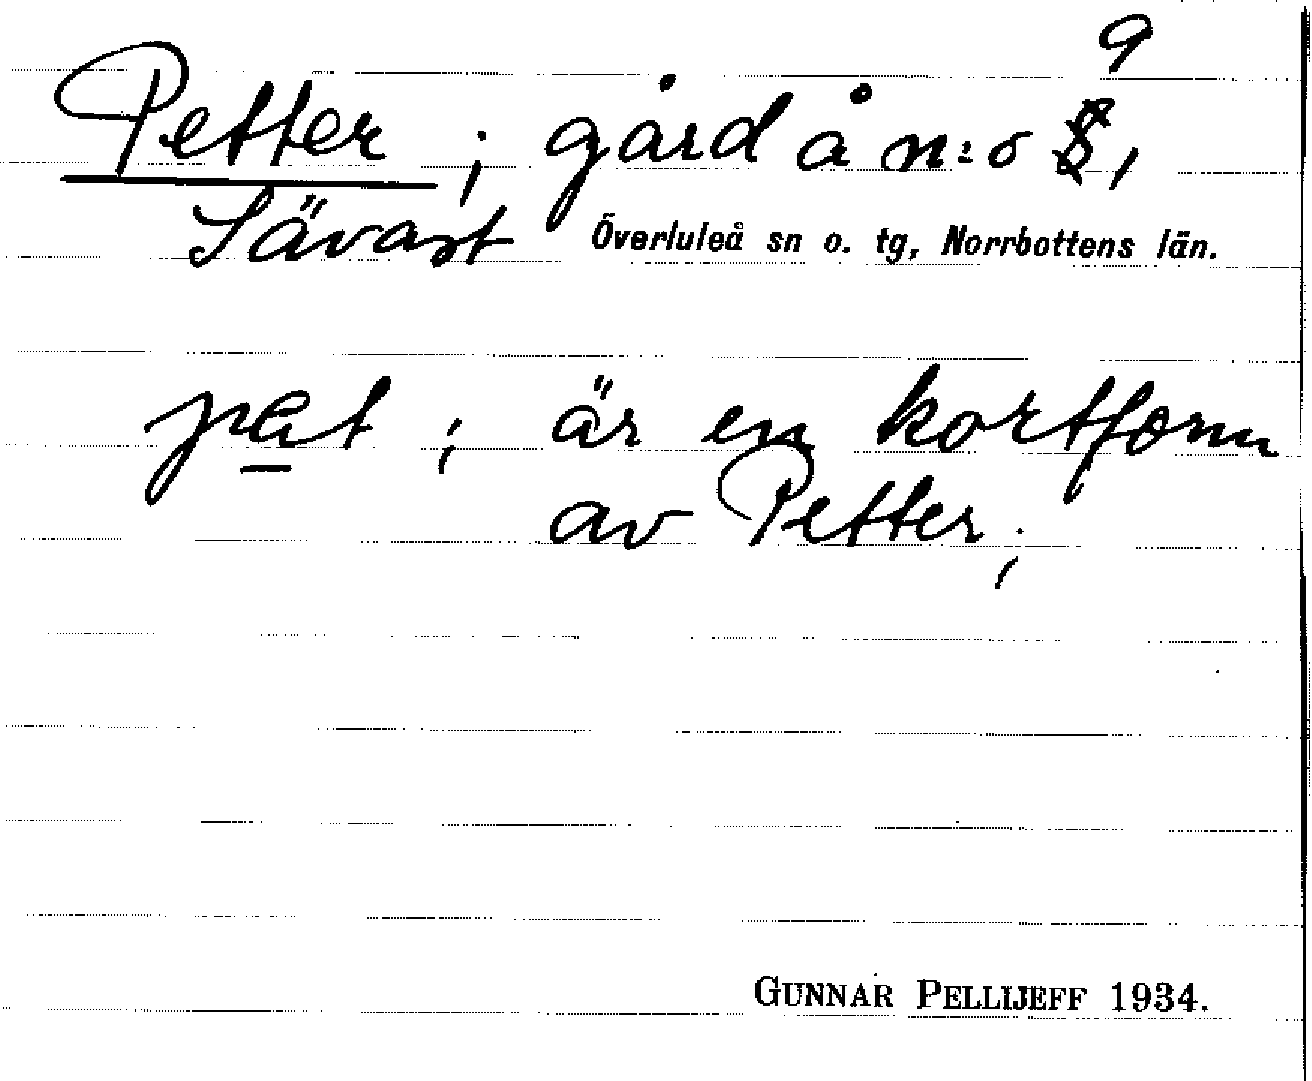 Petter; gård å n:o 9,
Sävast Överluleå sn o. tg, Norrbottens län.
pet; är en kortform
av Petter;
GUNNAR PELLIJEFF 1934.